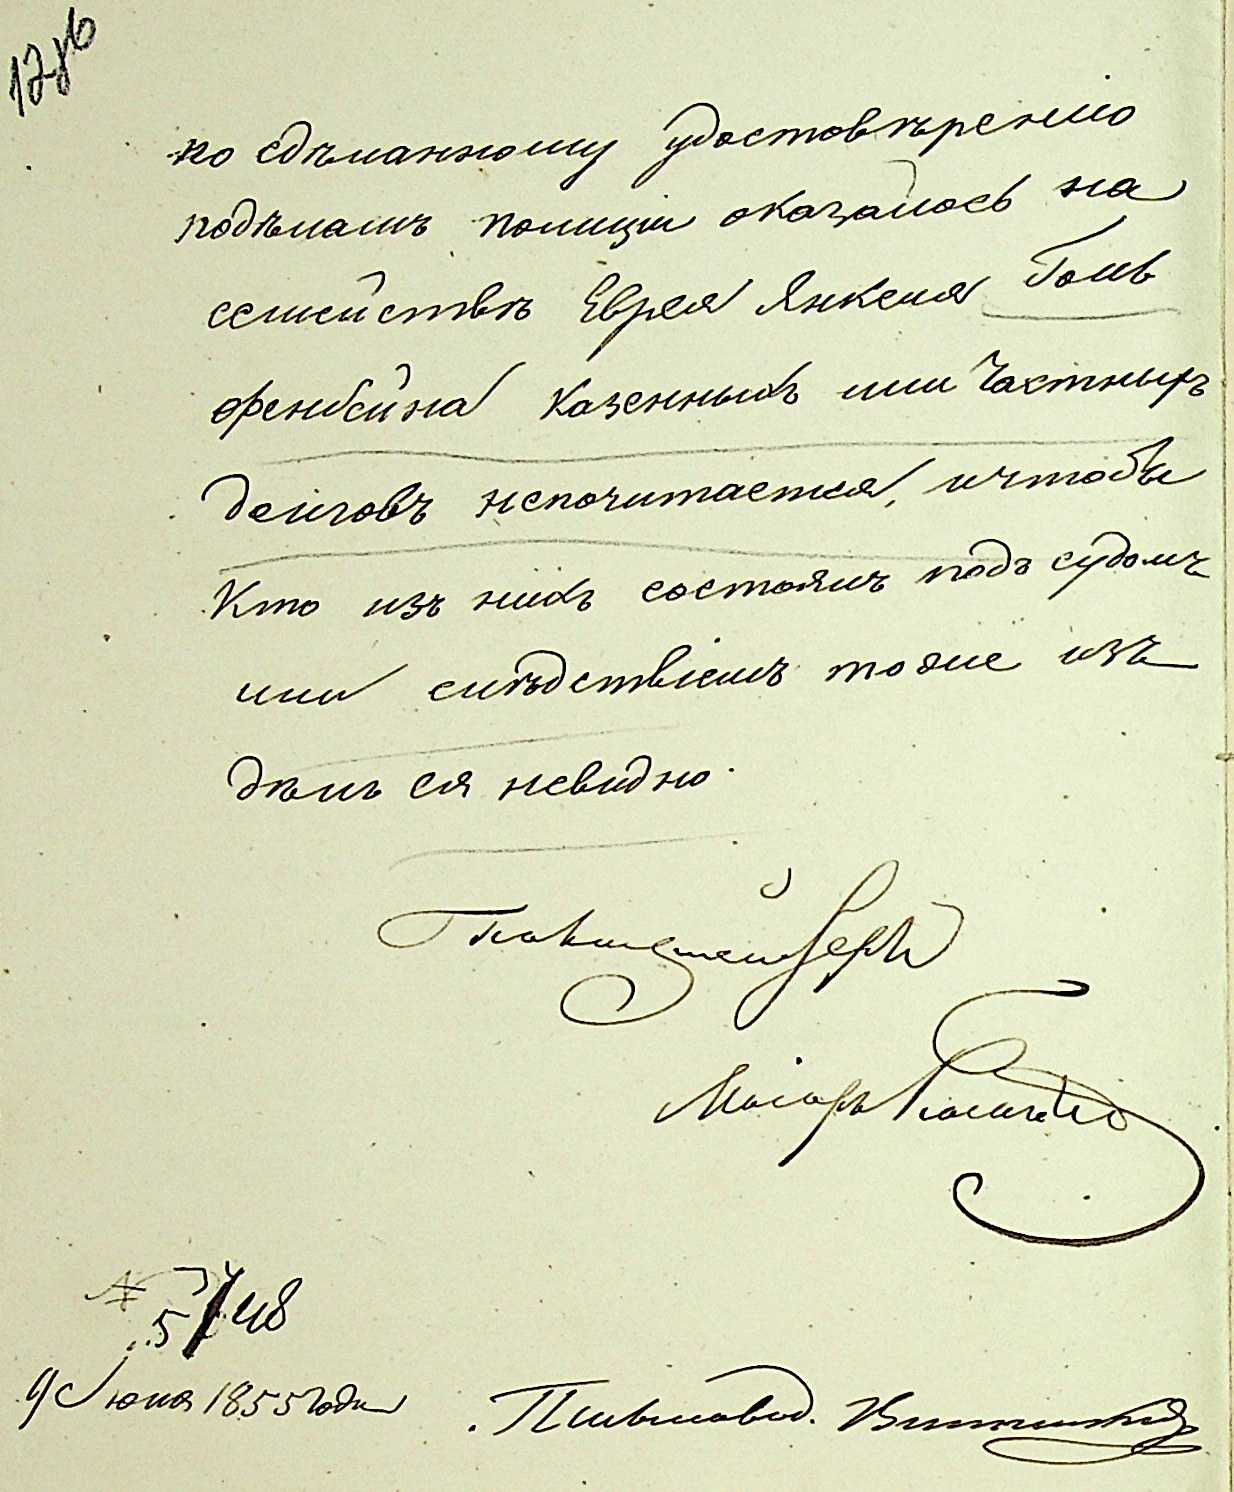 по сдѣланному удостовѣренію
подѣламъ полиціи оказалось на
семействѣ Еврея Янкеля Голь
фенбейна казенныхъ или частныхъ
долговъ непочитается, ичтобы
Кто изъ нихъ состоялъ подъ судомъ
или слѣдствіемъ тоже изъ
дѣлъ ея невидно.
Полиціймейстеръ
Маіоръ
№
5748
9 Июня 1855 года
Письмовод.